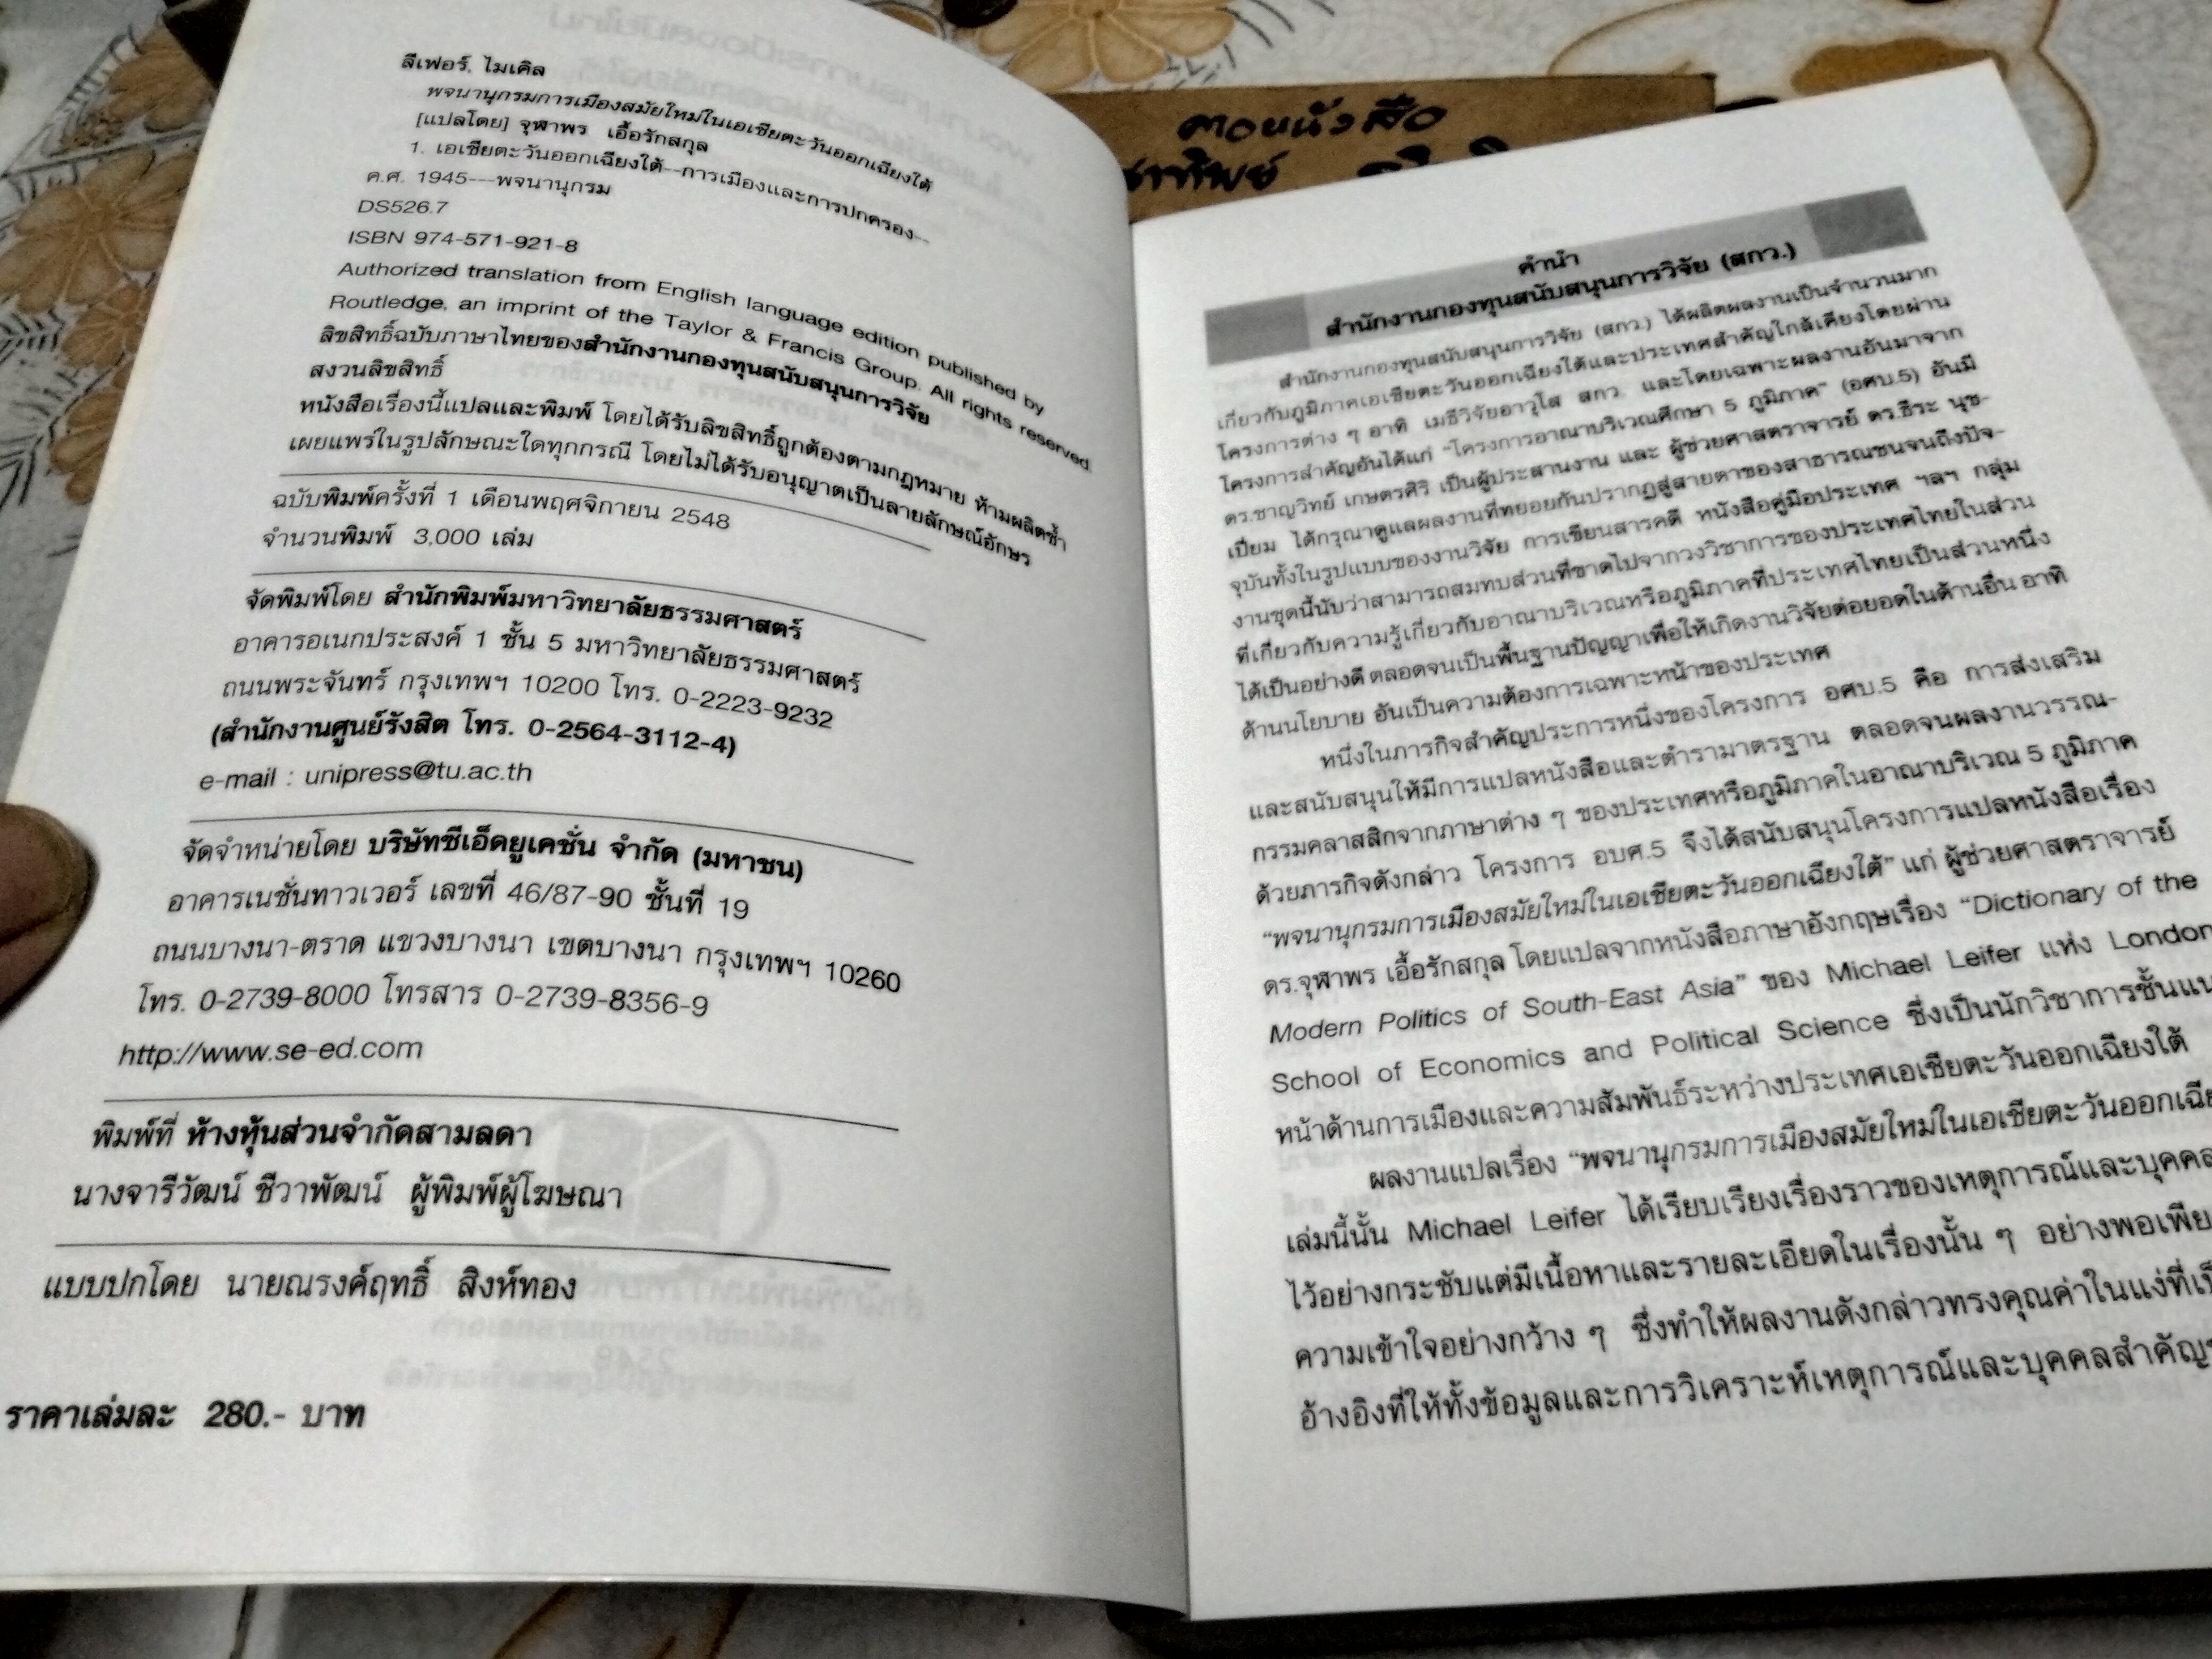 ลีเฟอร์, ไมเคิล
พจนานุกรมการเมืองสมัยใหม่ในเอเชียตะวันออกเฉียงใต้
[แปลโดย] จุฬาพร เอื้อรักสกุล
1. เอเชียตะวันออกเฉียงใต้--การเมืองและการปกครอง--
ค.ศ. 1945---พจนานุกรม
DS526.7
ISBN 974-571-921-8
Authorized translation from English language edition published by
Routledge, an imprint of the Taylor & Francis Group. All rights reserved.
ลิขสิทธิ์ฉบับภาษาไทยของสำนักงานกองทุนสนับสนุนการวิจัย
สงวนลิขสิทธิ์
หนังสือเรื่องนี้แปลและพิมพ์ โดยได้รับลิขสิทธิ์ถูกต้องตามกฎหมาย ห้ามผลิตซ้ำ
เผยแพร่ในรูปลักษณะใดทุกกรณี โดยไม่ได้รับอนุญาตเป็นลายลักษณ์อักษร
ฉบับพิมพ์ครั้งที่ 1 เดือนพฤศจิกายน 2548
จำนวนพิมพ์ 3,000 เล่ม
จัดพิมพ์โดย สำนักพิมพ์มหาวิทยาลัยธรรมศาสตร์
อาคารอเนกประสงค์ 1 ชั้น 5 มหาวิทยาลัยธรรมศาสตร์
ถนนพระจันทร์ กรุงเทพฯ 10200 โทร. 0-2223-9232
(สำนักงานศูนย์รังสิต โทร. 0-2564-3112-4)
e-mail : unipress@tu.ac.th
จัดจำหน่ายโดย บริษัทซีเอ็ดยูเคชั่น จำกัด (มหาชน)
อาคารเนชั่นทาวเวอร์ เลขที่ 46/87-90 ชั้นที่ 19
ถนนบางนา-ตราด แขวงบางนา เขตบางนา กรุงเทพฯ 10260
โทร. 0-2739-8000 โทรสาร 0-2739-8356-9
http://www.se-ed.com
พิมพ์ที่ ห้างหุ้นส่วนจำกัดสามลดา
นางจารีวัฒน์ ชีวาพัฒน์ ผู้พิมพ์ผู้โฆษณา
แบบปกโดย นายณรงค์ฤทธิ์ สิงห์ทอง
ราคาเล่มละ 280.- บาท
คอยนังสือ
คำนำ
สำนักงานกองทุนสนับสนุนการวิจัย (สกว.)
สำนักงานกองทุนสนับสนุนการวิจัย (สกว.) ได้ผลิตผลงานเป็นจำนวนมาก
เกี่ยวกับภูมิภาคเอเชียตะวันออกเฉียงใต้และประเทศสำคัญใกล้เคียงโดยผ่าน
โครงการต่าง ๆ อาทิ เมธีวิจัยอาวุโส สกว. และโดยเฉพาะผลงานอันมาจาก
โครงการสำคัญอันได้แก่ “โครงการอาณาบริเวณศึกษา 5 ภูมิภาค” (อศบ.5) อันมี
ดร.ชาญวิทย์ เกษตรศิริ เป็นผู้ประสานงาน และ ผู้ช่วยศาสตราจารย์ ดร.ธีระ นุช-
เปี่ยม ได้กรุณาดูแลผลงานที่ทยอยกันปรากฏสู่สายตาของสาธารณชนจนถึงปัจ-
จุบันทั้งในรูปแบบของงานวิจัย การเขียนสารคดี หนังสือคู่มือประเทศ ฯลฯ กลุ่ม
งานชุดนี้นับว่าสามารถสมทบส่วนที่ขาดไปจากวงวิชาการของประเทศไทยในส่วน
ที่เกี่ยวกับความรู้เกี่ยวกับอาณาบริเวณหรือภูมิภาคที่ประเทศไทยเป็นส่วนหนึ่ง
ได้เป็นอย่างดี ตลอดจนเป็นพื้นฐานปัญญาเพื่อให้เกิดงานวิจัยต่อยอดในด้านอื่น อาทิ
ด้านนโยบาย อันเป็นความต้องการเฉพาะหน้าของประเทศ
หนึ่งในภารกิจสำคัญประการหนึ่งของโครงการ อศบ.5 คือ การส่งเสริม
และสนับสนุนให้มีการแปลหนังสือและตำรามาตรฐาน ตลอดจนผลงานวรรณ-
กรรมคลาสสิกจากภาษาต่าง ๆ ของประเทศหรือภูมิภาคในอาณาบริเวณ 5 ภูมิภาค
ด้วยภารกิจดังกล่าว โครงการ อบศ.5 จึงได้สนับสนุนโครงการแปลหนังสือเรื่อง
“พจนานุกรมการเมืองสมัยใหม่ในเอเชียตะวันออกเฉียงใต้” แก่ ผู้ช่วยศาสตราจารย์
ดร.จุฬาพร เอื้อรักสกุล โดยแปลจากหนังสือภาษาอังกฤษเรื่อง “Dictionary of the
Modern Politics of South-East Asia” ของ Michael Leifer แห่ง London
School of Economics and Political Science ซึ่งเป็นนักวิชาการชั้นแน
หน้าด้านการเมืองและความสัมพันธ์ระหว่างประเทศเอเชียตะวันออกเฉียงใต้
ผลงานแปลเรื่อง “พจนานุกรมการเมืองสมัยใหม่ในเอเชียตะวันออกเฉีย
เล่มนี้นั้น Michael Leifer ได้เรียบเรียงเรื่องราวของเหตุการณ์และบุคคล
ไว้อย่างกระชับแต่มีเนื้อหาและรายละเอียดในเรื่องนั้น ๆ อย่างพอเพีย
ความเข้าใจอย่างกว้าง ๆ ซึ่งทำให้ผลงานดังกล่าวทรงคุณค่าในแง่ที่เป็
อ้างอิงที่ให้ทั้งข้อมูลและการวิเคราะห์เหตุการณ์และบุคคลสำคัญ